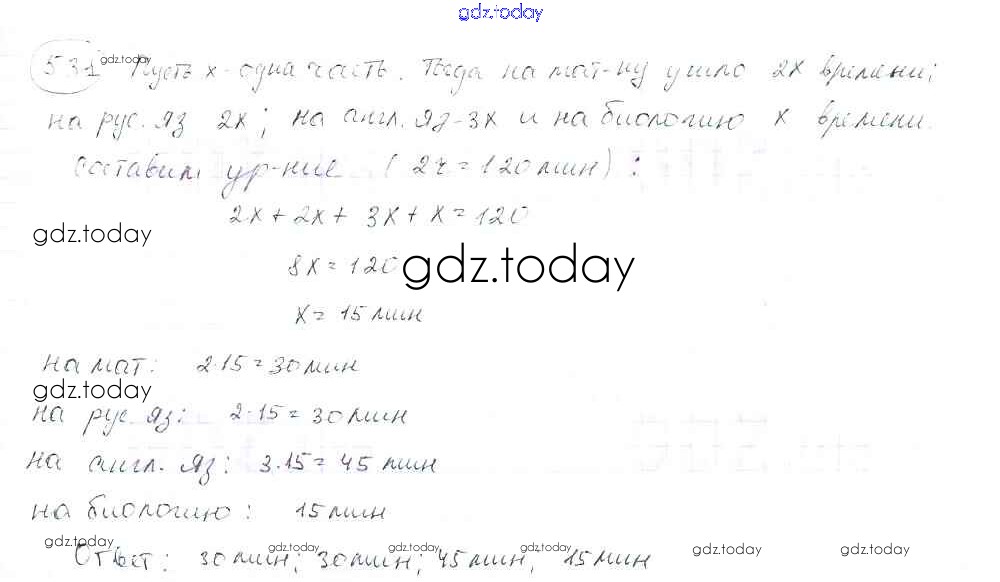 gdz.today
531 gdz.today Пусть x - одна часть. Тогда на мат-ку ушло 2x времени;
на рус. яз 2x; на англ. яз - 3x и на биологию x времени.
Составим ур-ние (2ч = 120 мин):
2x + 2x + 3x + x = 120
gdz.today
8x = 120
gdz.today
x = 15 мин
на мат: 2·15 = 30 мин
gdz.today
на рус. яз: 2·15 = 30 мин
на англ. яз: 3·15 = 45 мин
на биологию: 15 мин
gdz.today gdz.today gdz.today gdz.today gdz.today gdz.today
Ответ: 30 мин; 30 мин; 45 мин, 15 мин